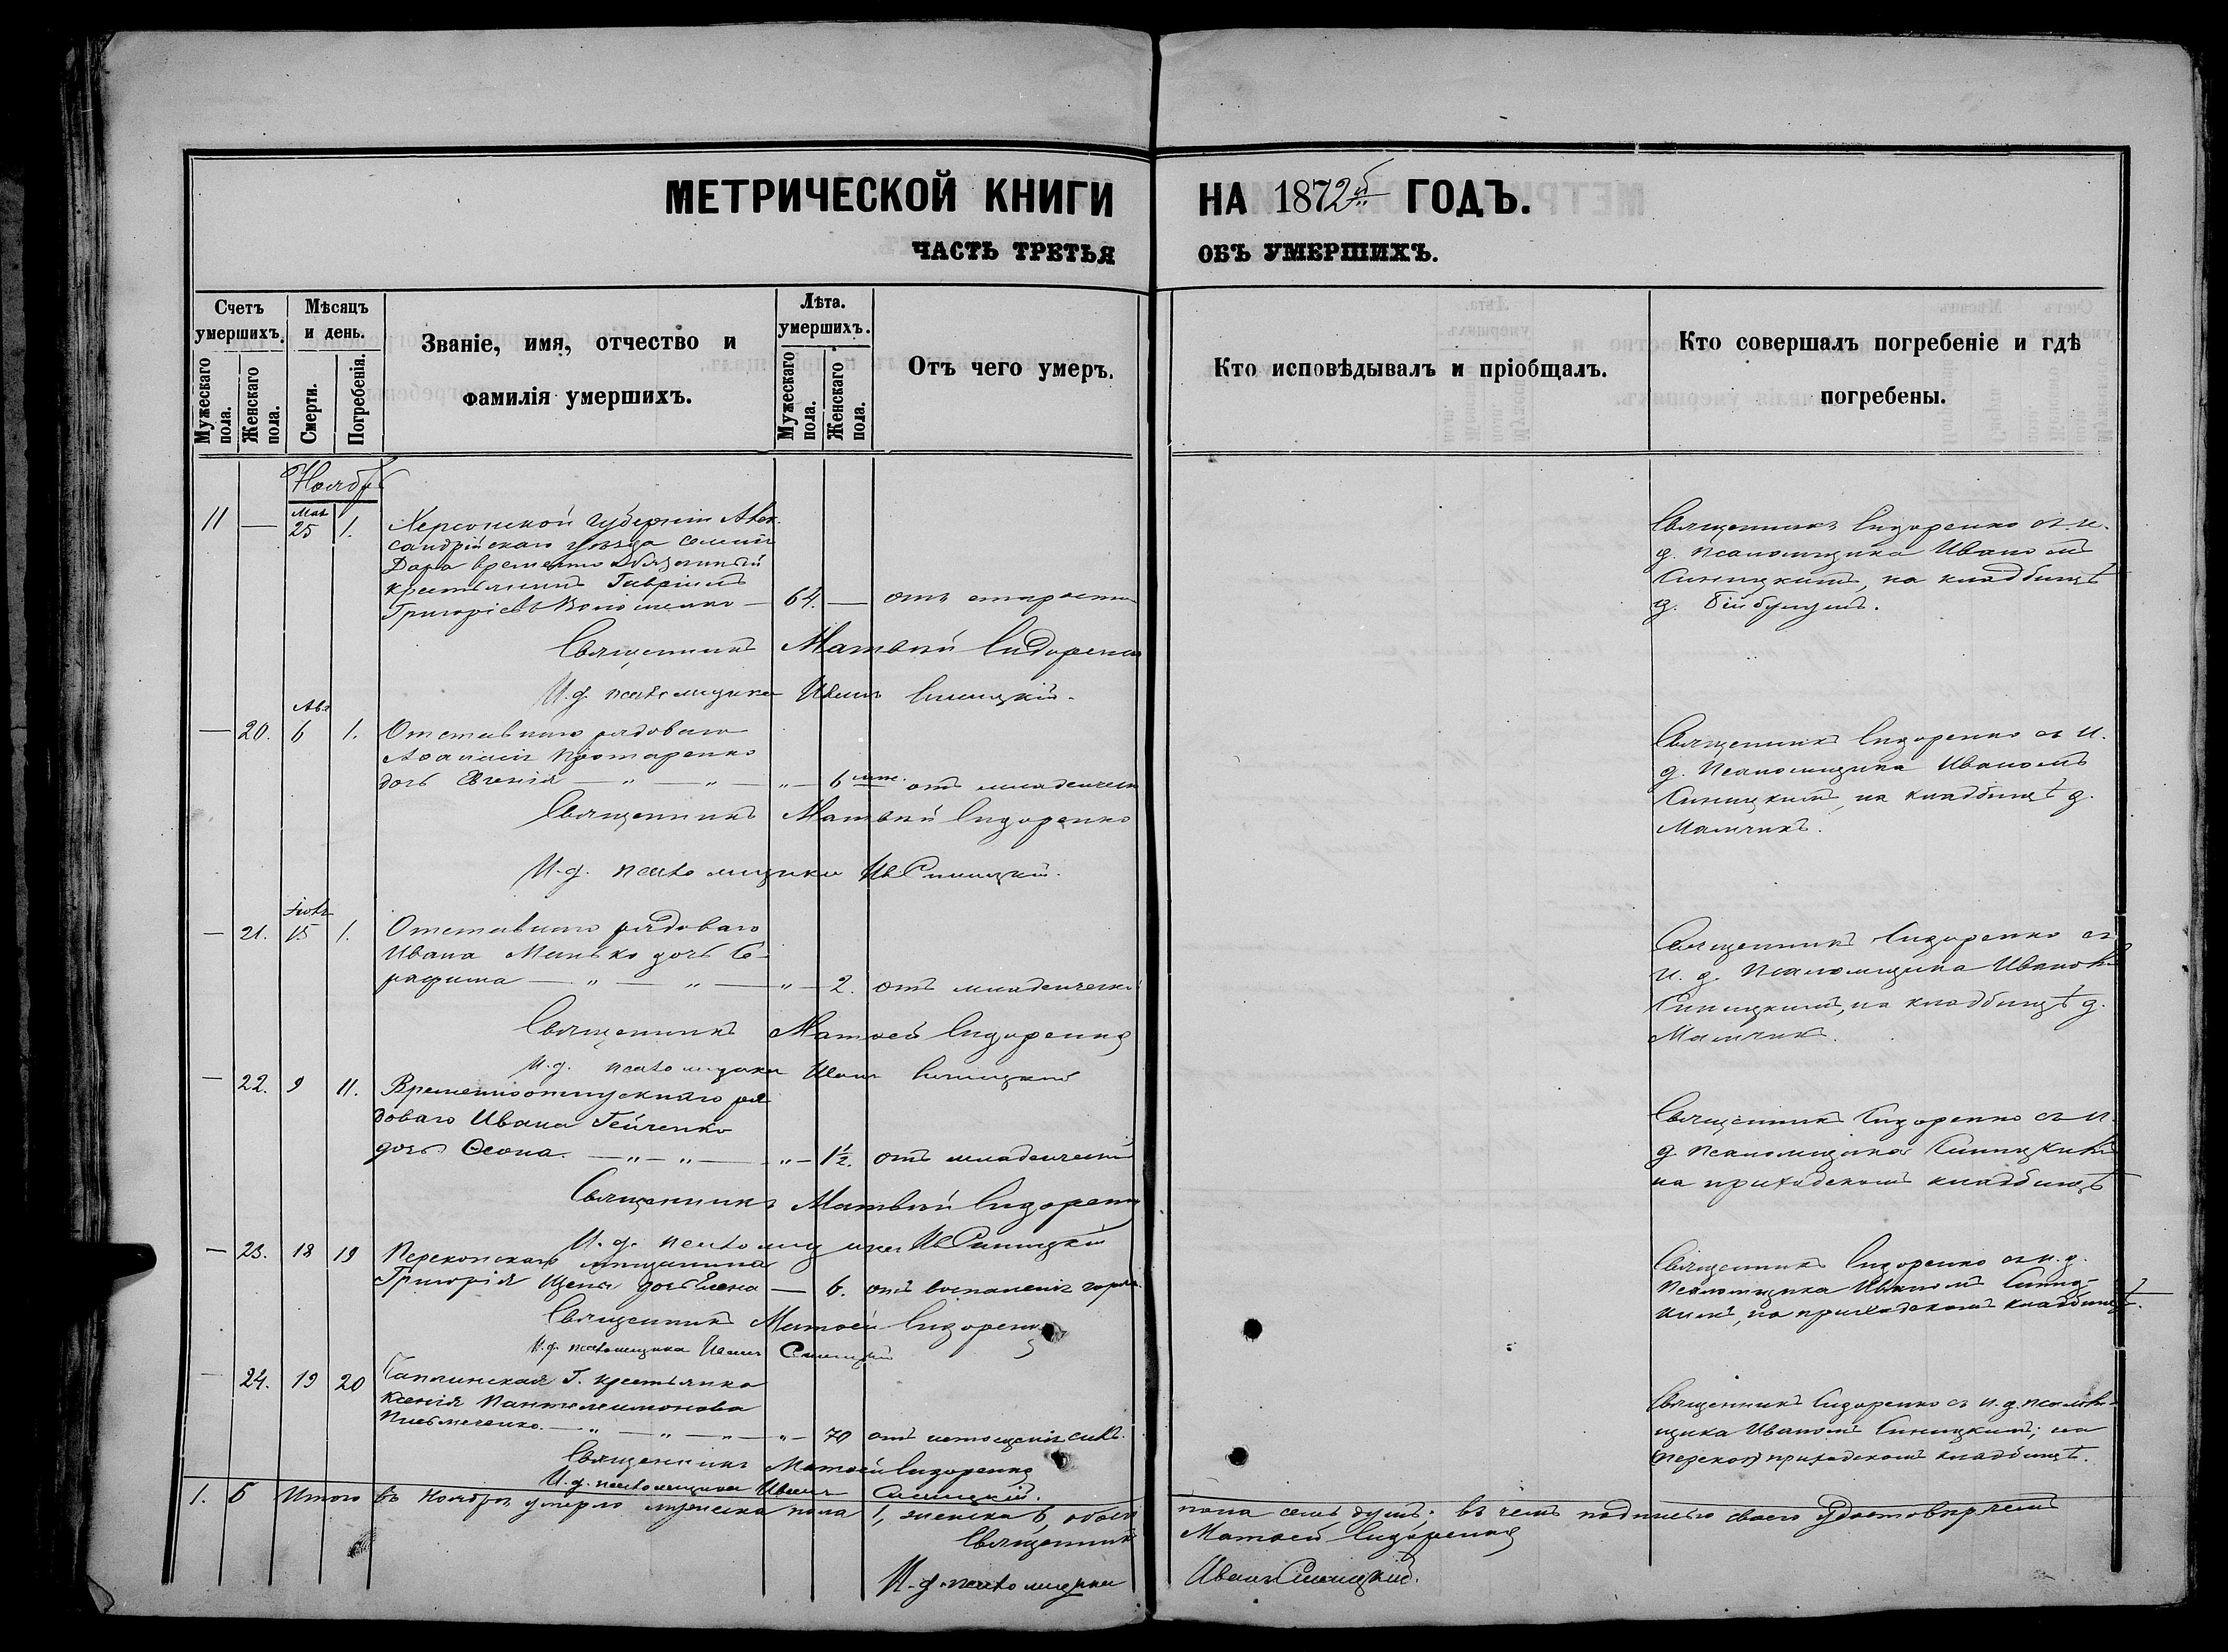 МЕТРИЧЕСКОЙ КНИГИ
НА 1872й ГОДЪ.
ЧАСТЬ ТРЕТЬЯ
ОБЪ УМЕРШИХЪ.
Счетъ умершихъ.
Мужескаго пола.
Женскаго пола.
Мѣсяцъ и день.
Смерти.
Погребенія.
Званіе, имя, отчество и
фамилія умершихъ.
Лѣта. умершихъ.
Мужескаго пола.
Женскаго пола.
Отъ чего умеръ.
Кто исповѣдывалъ и пріобщалъ.
Кто совершалъ погребеніе и гдѣ
погребены.
Ноябрь
Мая
11 — 25 1. Херсонской губерніи Алек-
сандрійскаго уѣзда
временно обязанный
крестьянинъ Гавріилъ
Григоріевъ — 64. — отъ старости
Священникъ Матвѣй Сидоренко
И. д. псаломщика Иванъ Синицкій.
Священникъ Сидоренко съ и.
д. псаломщика Иваномъ
Синицкимъ, на кладбищѣ
д.
— 20. 6 1. Отставнаго рядоваго
дочь Евгенія — " — " — " — 6 отъ младенческ
Священникъ Матвѣй Сидоренко
И. д. псаломщика Ив Синицкій.
Священникъ Сидоренко съ и.
д. псаломщика Иваномъ
Синицкимъ, на кладбищѣ д.
— 21. 15 1. Отставнаго рядоваго
Ивана Манько дочь Се-
рафима — " — " — " — 2. отъ младенческ
Священникъ Матѳей Сидоренко
И. д. псаломщика Иванъ Синицкій
Священникъ Сидоренко съ
и. д. псаломщика Иваномъ
Синицкимъ, на кладбищѣ д.
— 22. 9 11. Временноотпускнаго ря
доваго Ивана Гейченко
дочь — " — " — " — 1½. отъ младенческ
Священникъ Матвѣй Сидоренко
И. д. псаломщика Ив Синицкій
Священникъ Сидоренко съ и.
д. псаломщика Синицкимъ
на приходскомъ кладбищѣ
— 23. 18 19 Перекопскаго мѣщанина
Григорія дочь Елена — 6. отъ воспаленія горла
Священникъ Матѳей Сидоренко
И. д. псаломщика Иванъ Синицкій
Священникъ Сидоренко съ и. д.
псаломщика Иваномъ Синиц-
кимъ, на приходскомъ кладбищѣ.
— 24. 19 20 крестьянка
Ксенія Пантелеимонова
Письмеченко. — " — " — " — " — 70 отъ истощенія силъ.
Священникъ Матѳей Сидоренко
И. д. псаломщика Иванъ Синицкій.
Священникъ Сидоренко съ и. д. псалом-
щика Иваномъ Синицкимъ, на
приходскомъ кладбищѣ.
1. 6 Итого въ Ноябрѣ умерло мужеска пола 1, женска 6, обоего
пола семь душъ. въ чемъ подписью своею удостовѣряемъ
Священникъ
Матѳей Сидоренко
И. д. псаломщика
Иванъ Синицкій.